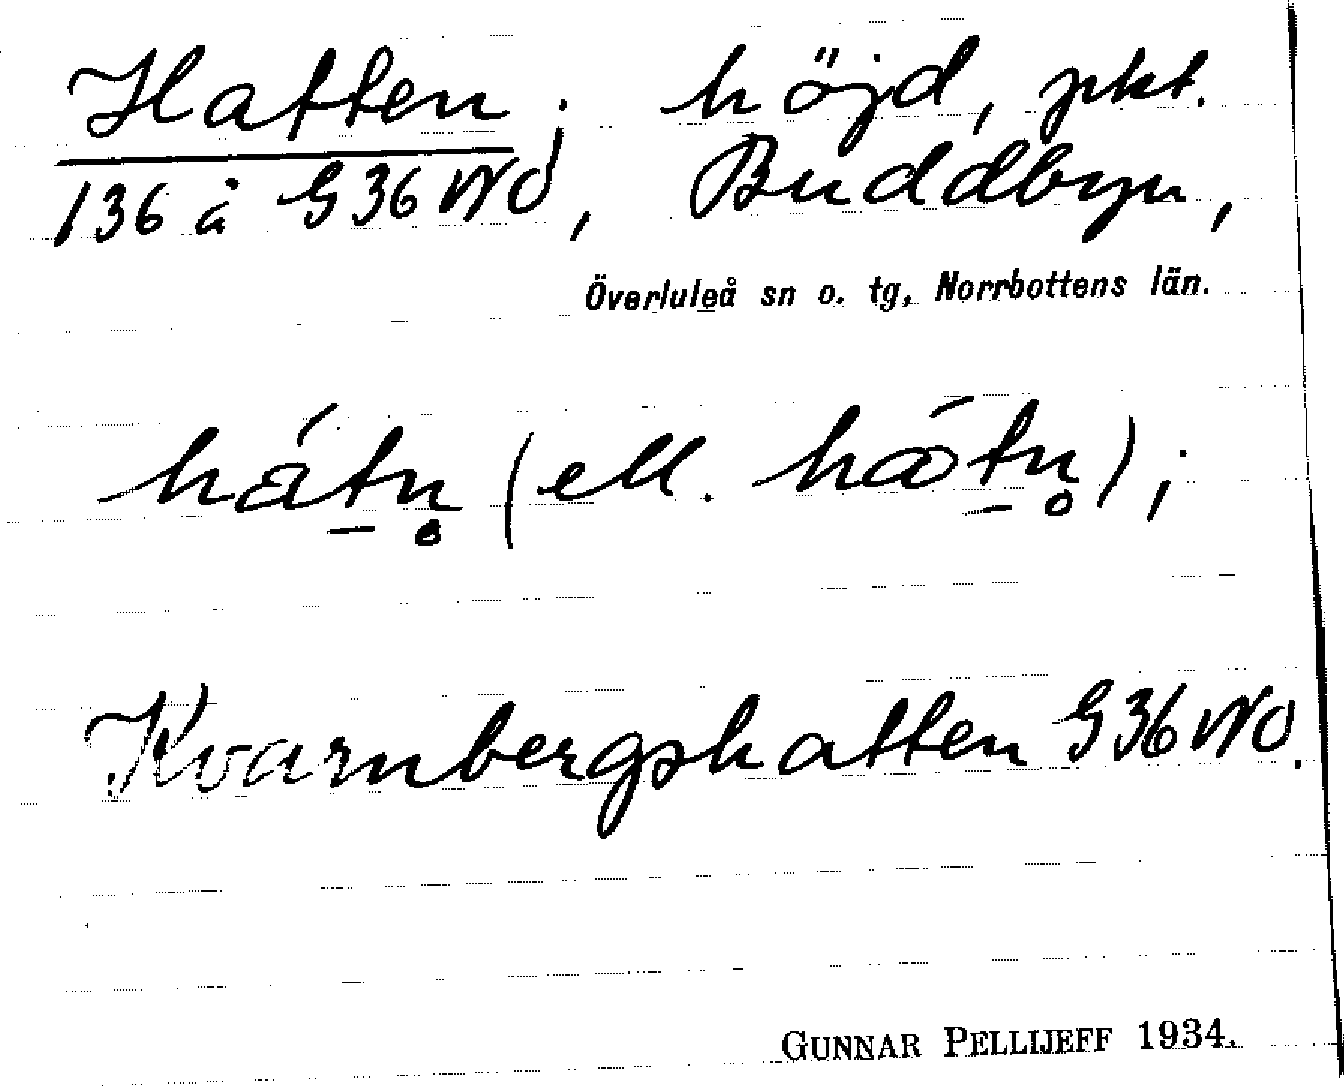 Hatten; höjd, pkt.
136 å G36NO, Buddbyn,
Överluleå sn o. tg, Norrbottens län.
hát̲n̥ (ell. hát̲n̥);
Kvarnbergshatten G36NO.
GUNNAR PELLIJEFF 1934.